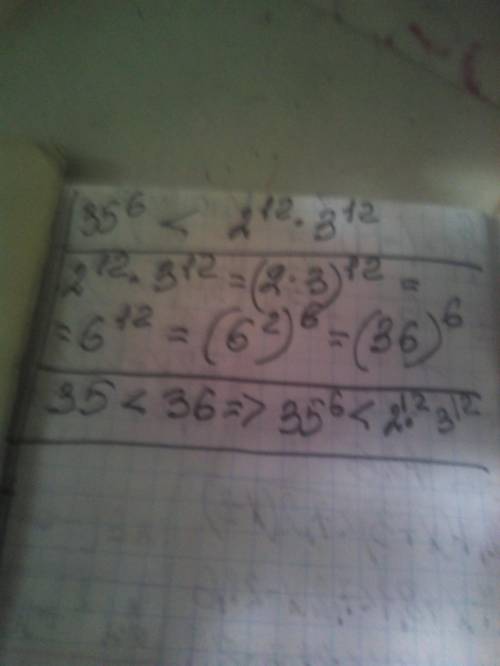 35⁶ < 2¹² · 3¹²
2¹² · 3¹² = (2 · 3)¹² =
= 6¹² = (6²)⁶ = (36)⁶
35 < 36 => 35⁶ < 2¹² · 3¹²